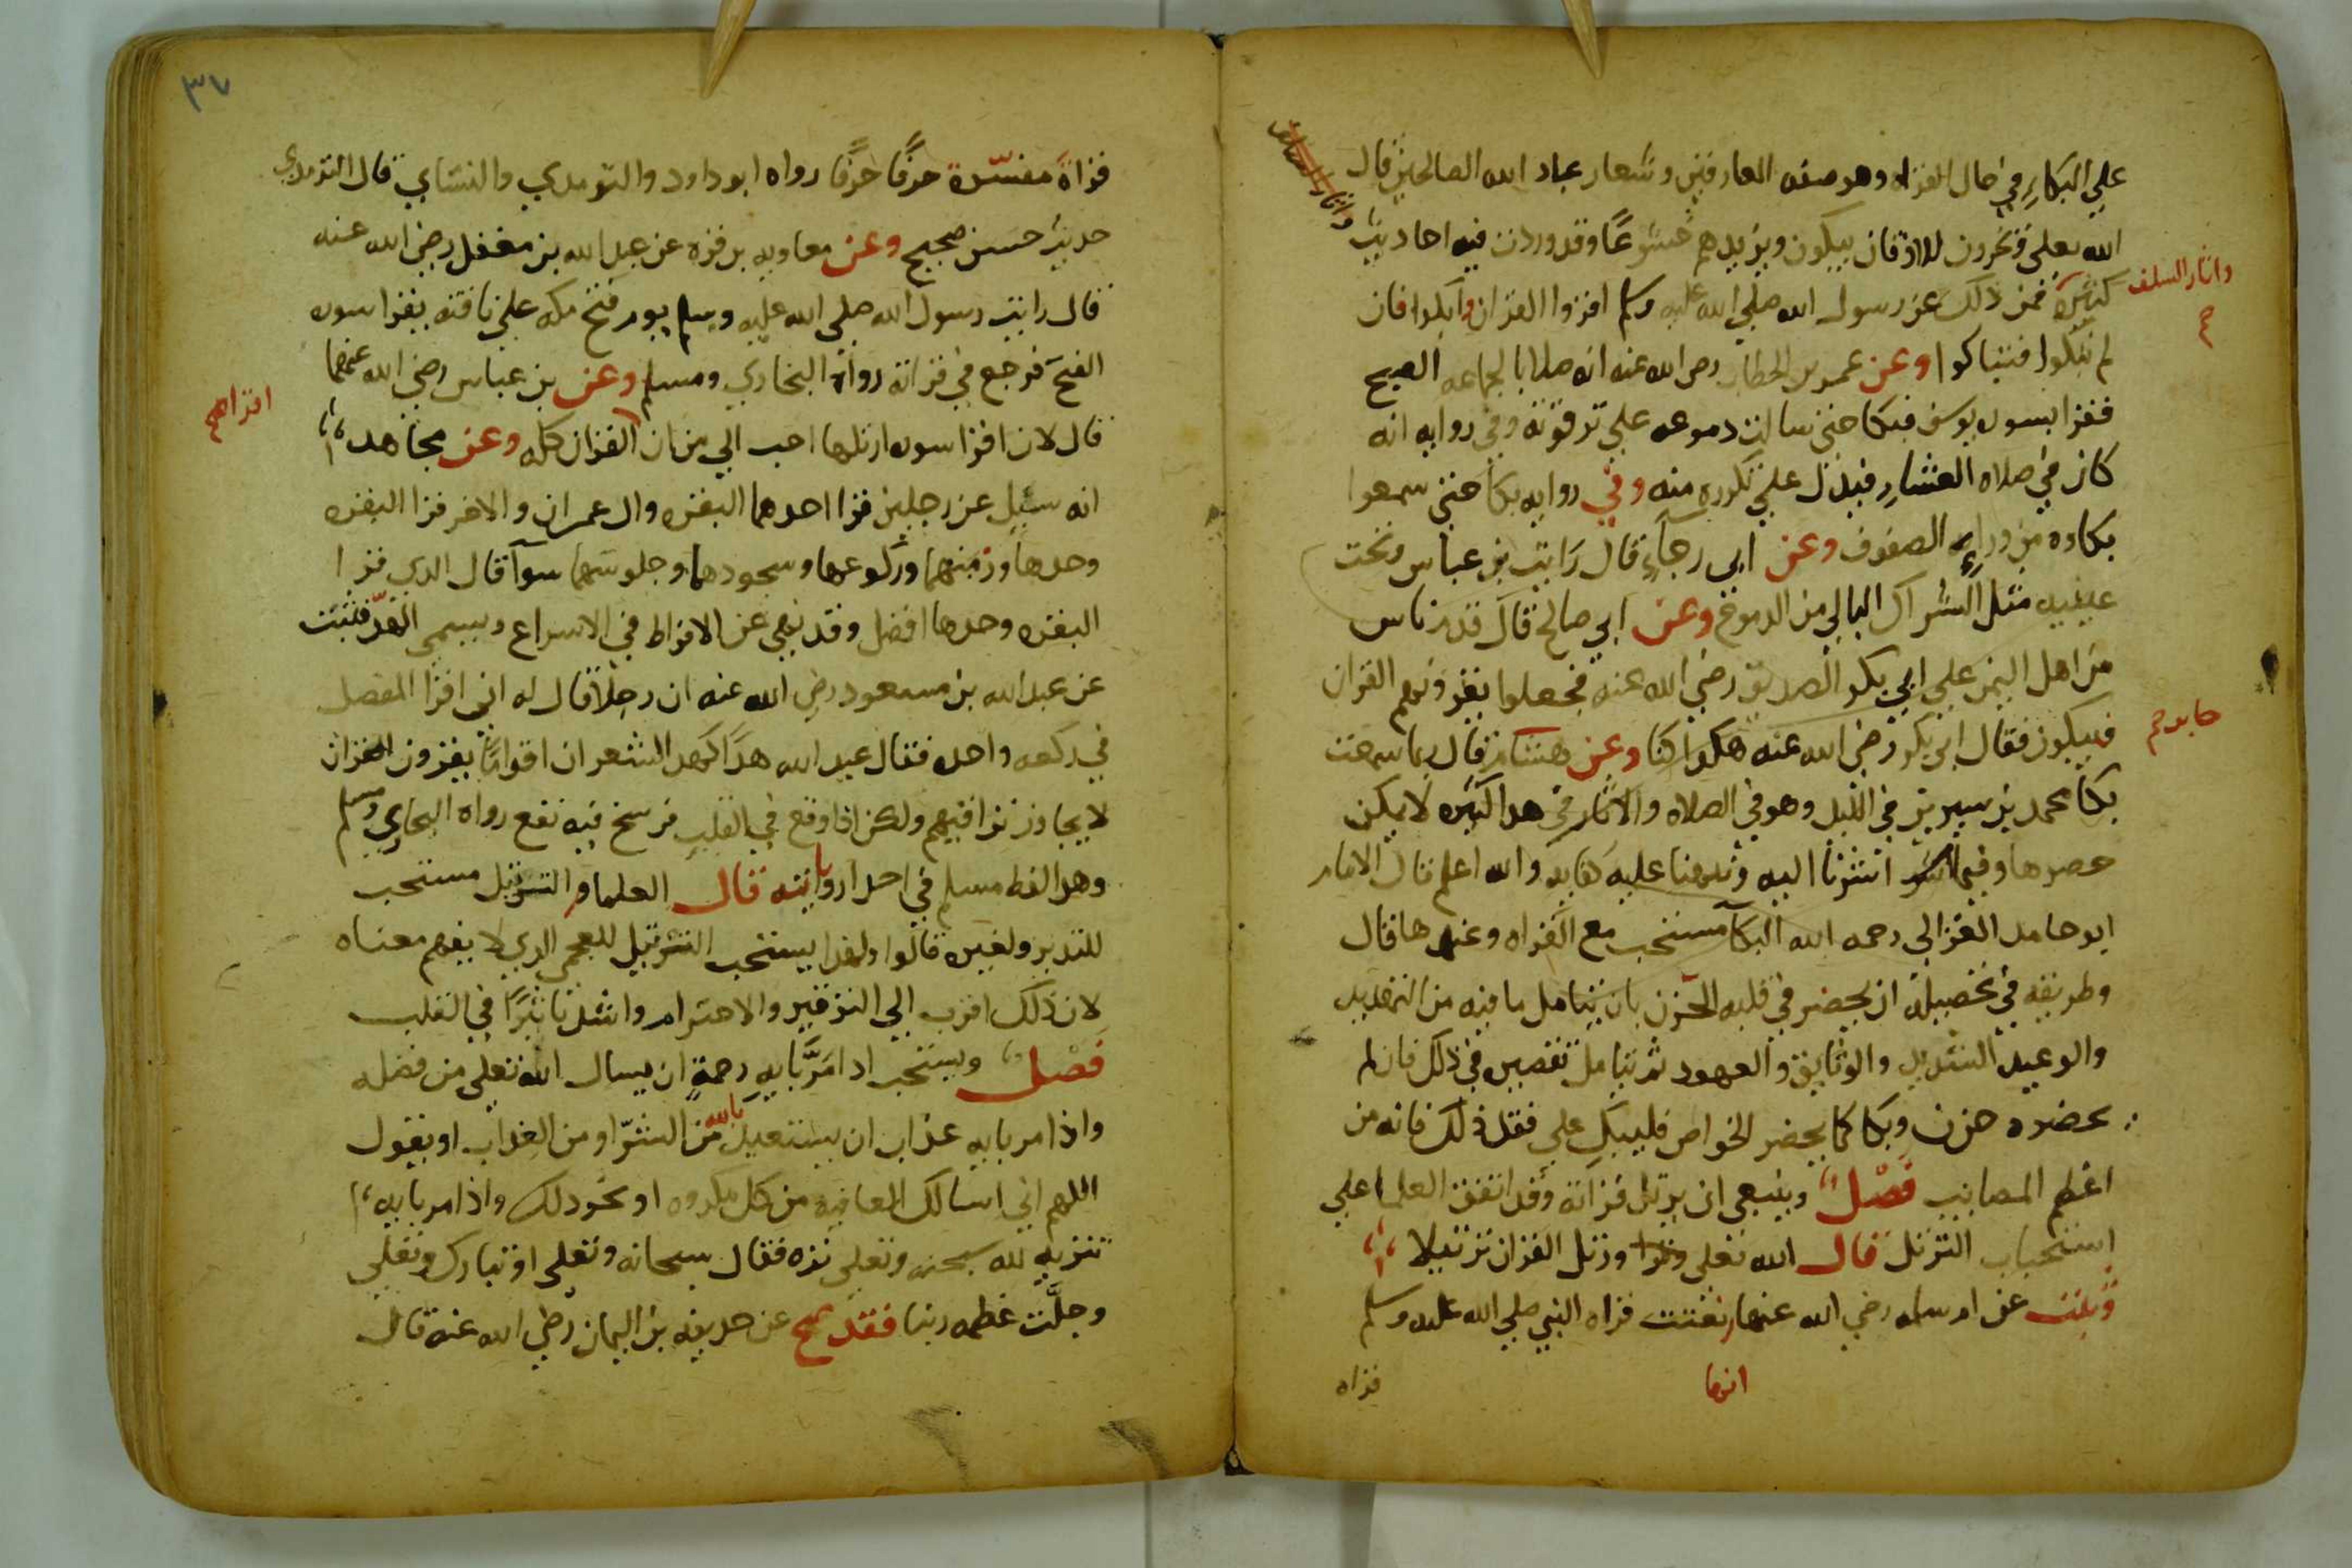 علي البكاءِ في حال القراه وهو صفه العارفين وشعار عباد الله الصالحين قال
الله تعلى ويخرون للاذقان يبكون ويزيدهم خشوعًا وقد وردت فيه احاديث
واثار السلف
كثيرة فمن ذلك عن رسول الله صلي الله عليه وسلم اقروا القران وابكوا فان
صح
لم تبكوا فتباكوا وعن عمر بن الخطاب رضي الله عنه انه صلا بالجماعه الصبح
فقرا بسوره يوسف فبكا حتى سالت دموعه علي ترقوته وفي روايه انه
كان في صلاه العشاء فيدل علي تكرره منه وفي روايه بكا حتى سمعوا
بكاوه من وراء الصفوف وعن ابي رجاءٍ قال رايت بن عباس وتحت
عينيه مثل الشراك البالي من الدموع وعن ابي صالح قال قدم ناس
من اهل اليمن علي ابي بكر الصديق رضي الله عنه فجعلوا يقرون القران
فيبكون فقال ابي بكر رضي الله عنه هكذا كنا وعن هشام قال ربما سمعت
بكا محمد بن سيرين في الليل وهو في الصلاه والاثار في هدا كثيره لا يمكن
حصرها وفيما اشرنا اليه ونبهنا عليه كفايه والله اعلم قال الامام
ابو حامد الغزالى رحمه الله البكآ مستحب مع القراه وعندها قال
وطريقه في تحصيله ان يحضر في قلبه الحزن بان يتامل ما فيه من التهديد
والوعيد الشديد والوثايق والعهود ثم يتامل تقصيره في ذلك فان لم
يحضره حزن وبكا كما يحضر الخواص فليبك علي فقد ذلك فانه من
اعظم المصايب فَصْل وينبغي ان يرتل قرآته وقد اتفق العلما علي
استحباب الترتل قال الله تعلى ورتل القران ترتيلا
وثبت عن ام سلمه رضي الله عنها نعتت قراه النبي صلي الله عليه وسلم
انها
قراه
٣٧
قراةً مفسّرة حرفًا حرفًا رواه ابو داود والترمدي والنساي قال الترمدي
حديث حسن صحيح وعن معاويه بن قره عن عبد الله بن مغفل رضي الله عنه
قال رايت رسول الله صلي الله عليه وسلم يوم فتح مكه على ناقته يقرا سوره
الفتح فرجع في قراته رواه البخاري ومسلم وعن بن عباس رضي الله عنهما
قال لان اقرا سوره ارتلها احب الي من ان القران كله وعن مجاهد
انه سئيل عن رجلين قرا احدهما البقره وال عمران والاخر قرا البقره
وحدها وزمنهما وركوعها وسجودهما وجلوسهما سوآ قال الدي قرا
البقره وحدها افضل وقد نهي عن الافراط في الاسراع ويسمى الهدّ فثبت
عن عبد الله بن مسعود رضي الله عنه ان رجلاً قال له اني اقرا المفصل
في ركعه واحده فقال عبد الله هدًا كهد الشعر ان اقوامًا يقرون القران
لا يجاوز تراقيهم ولكن اذا وقع في القلب فرسخ فيه نفع رواه البخاري ومسلم
وهدا لفظ مسلم في احدا رواياته قال العلما والترتيل مستحب
للتدبر ولغيره قالوا ولهدا يستحب الترتيل للعجمي الدي لا يفهم معناه
لان ذلك اقرب الي التوقير والاحترام واشد تاثيرًا في القلب
فَصْل ويستحب ادا مَرَّ بايه رحمةٍ ان يسال الله تعلي من فضله
واذا مر بايه عذاب ان يستعيذ بالله من الشرّ او من العذاب او يقول
اللهم اني اسالك العافيه من كل مكروه او نحو دلك واذا مر بايه
تنزيه لله سبحنه وتعلي نزه فقال سبحانه وتعلى او تبارك وتعلي
وجلَّت عظمه ربنا فقد صح عن حديفه بن اليمان رضي الله عنه قال